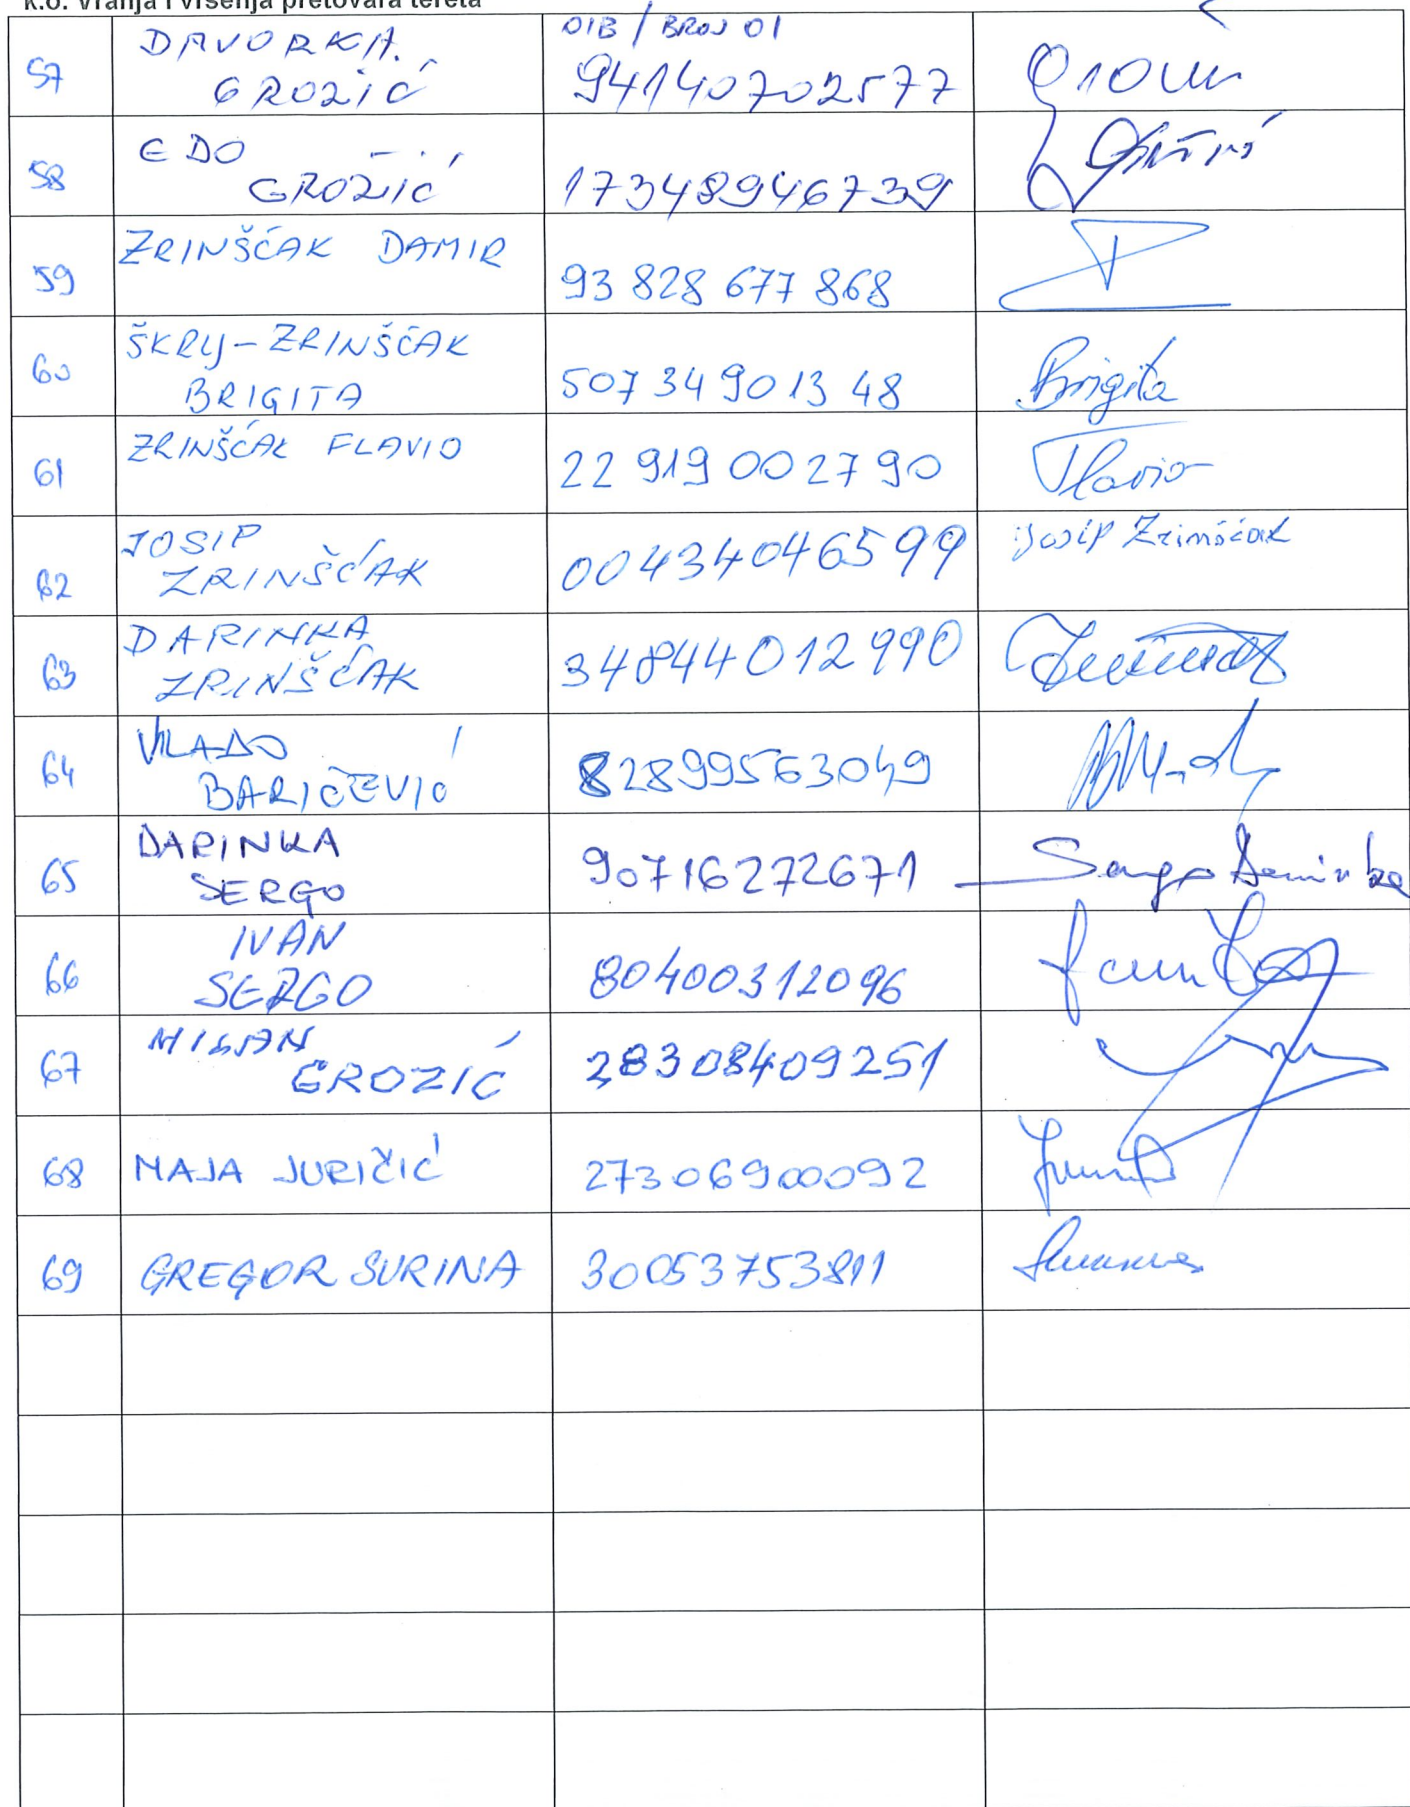 k.o. Vranja i vršenja pretovara tereta
OIB / BROJ OI
57 DAVORKA GROZIĆ 94140702577
58 EDO GROZIĆ 17348946739
59 ZRINŠĆAK DAMIR 93 828 677 868
60 ŠKRLJ-ZRINŠĆAK BRIGITA 507 34 9013 48 Brigita
61 ZRINŠĆAK FLAVIO 22 919 002790 Flavio
62 JOSIP ZRINŠĆAK 00434046599 Josip Zrinšćak
63 DARINKA ZRINŠĆAK 34844012990
64 VLADO BARIČEVIĆ 82899563049
65 DARINKA SERGO 90716272671 Sergo Darinka
66 IVAN SERGO 80400312096
67 MILJAN GROZIĆ 28308409251
68 MAJA JURIČIĆ 27306900092
69 GREGOR SURINA 30053753811